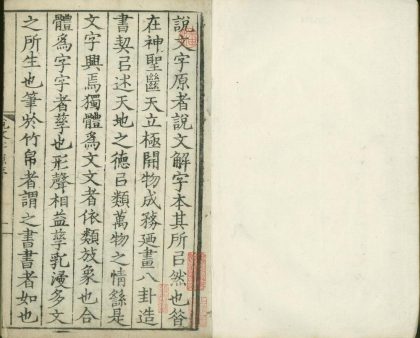 說文字原者說文解字本其所㠯然也昝
在神聖繼天立極開物成務廼畫八卦造
書契㠯述天地之德㠯類萬物之情繇是
文字興焉獨體爲文文者依類放象也合
體爲字字者孳也形聲相益孳乳漫多文
之所生也筆於竹帛者謂之書書者如也